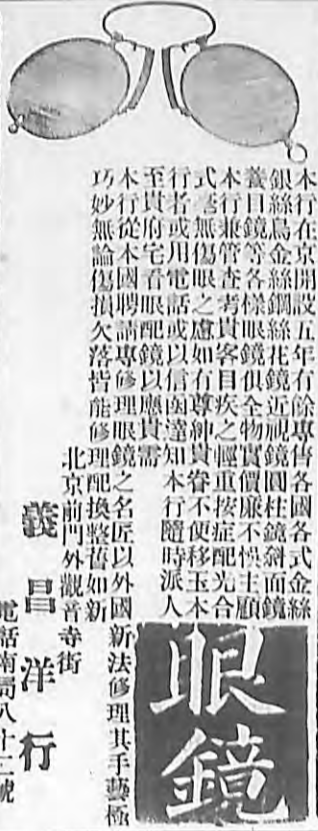 眼鏡
本行在京開設五年有餘專售各國各式金絲
銀絲烏金絲鋼絲花鏡近視鏡圓柱鏡斜面鏡
養目鏡等各樣眼鏡俱全物實價廉不悞主顧
本行兼管查考貴客目疾之輕重按症配光合
式毫無傷眼之慮如有尊紳貴眷不便移玉本
行者或用電話或以信函達知本行隨時派人
至貴府宅看眼配鏡以應貴需
本行從本國聘請專修理眼鏡之名匠以外國新法修理其手藝極
巧妙無論傷損欠落皆能修理配換整舊如新
北京前門外觀音寺街
義昌洋行
電話南局八十二號